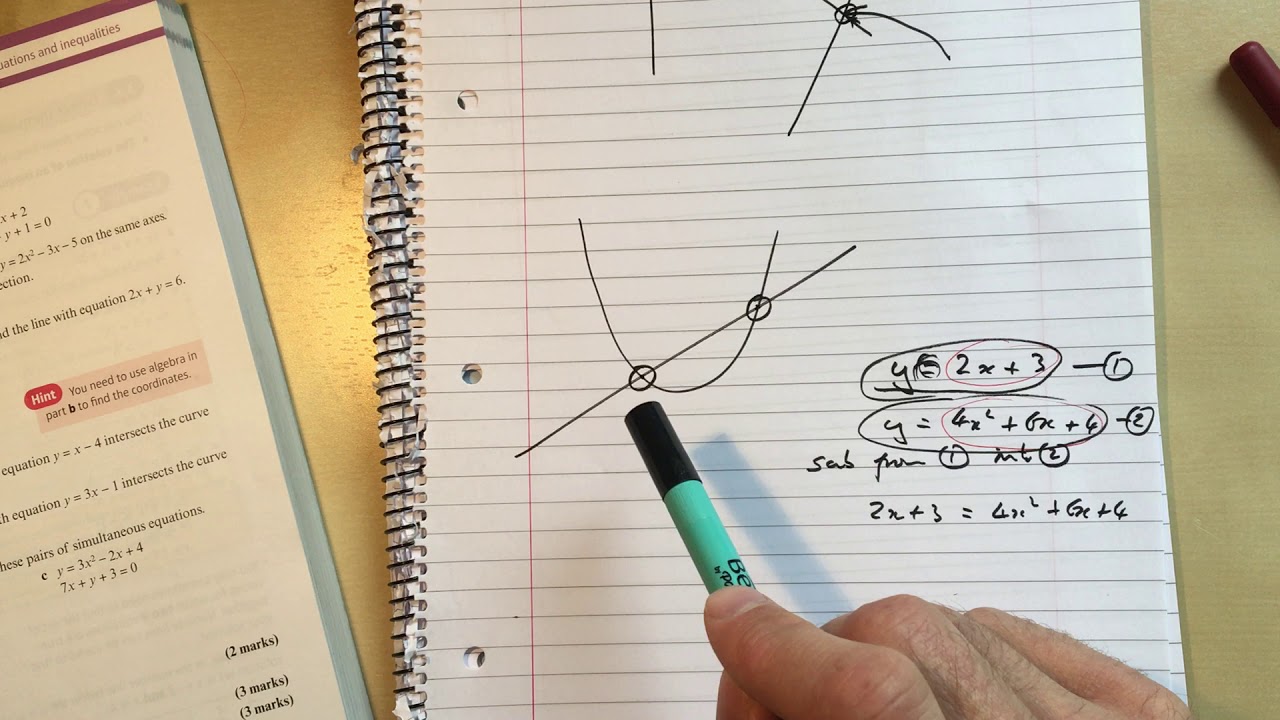 uations and inequalities
x + 2
y + 1 = 0
y = 2x² − 3x − 5 on the same axes.
ection.
d the line with equation 2x + y = 6.
Hint You need to use algebra in
part b to find the coordinates.
equation y = x − 4 intersects the curve
h equation y = 3x − 1 intersects the curve
hese pairs of simultaneous equations.
c y = 3x² − 2x + 4
7x + y + 3 = 0
(2 marks)
(3 marks)
(3 marks)
y = 2x + 3 — ①
y = 4x² + 6x + 4 — ②
sub from ① into ②
2x + 3 = 4x² + 6x + 4